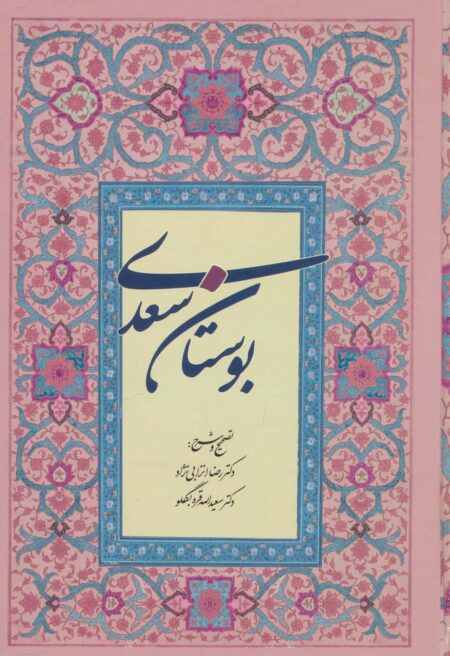 بوستان سعدی
تصحیح و شرح:
دکتر رضا انزابی نژاد
دکتر سعیدالله قره بگلو